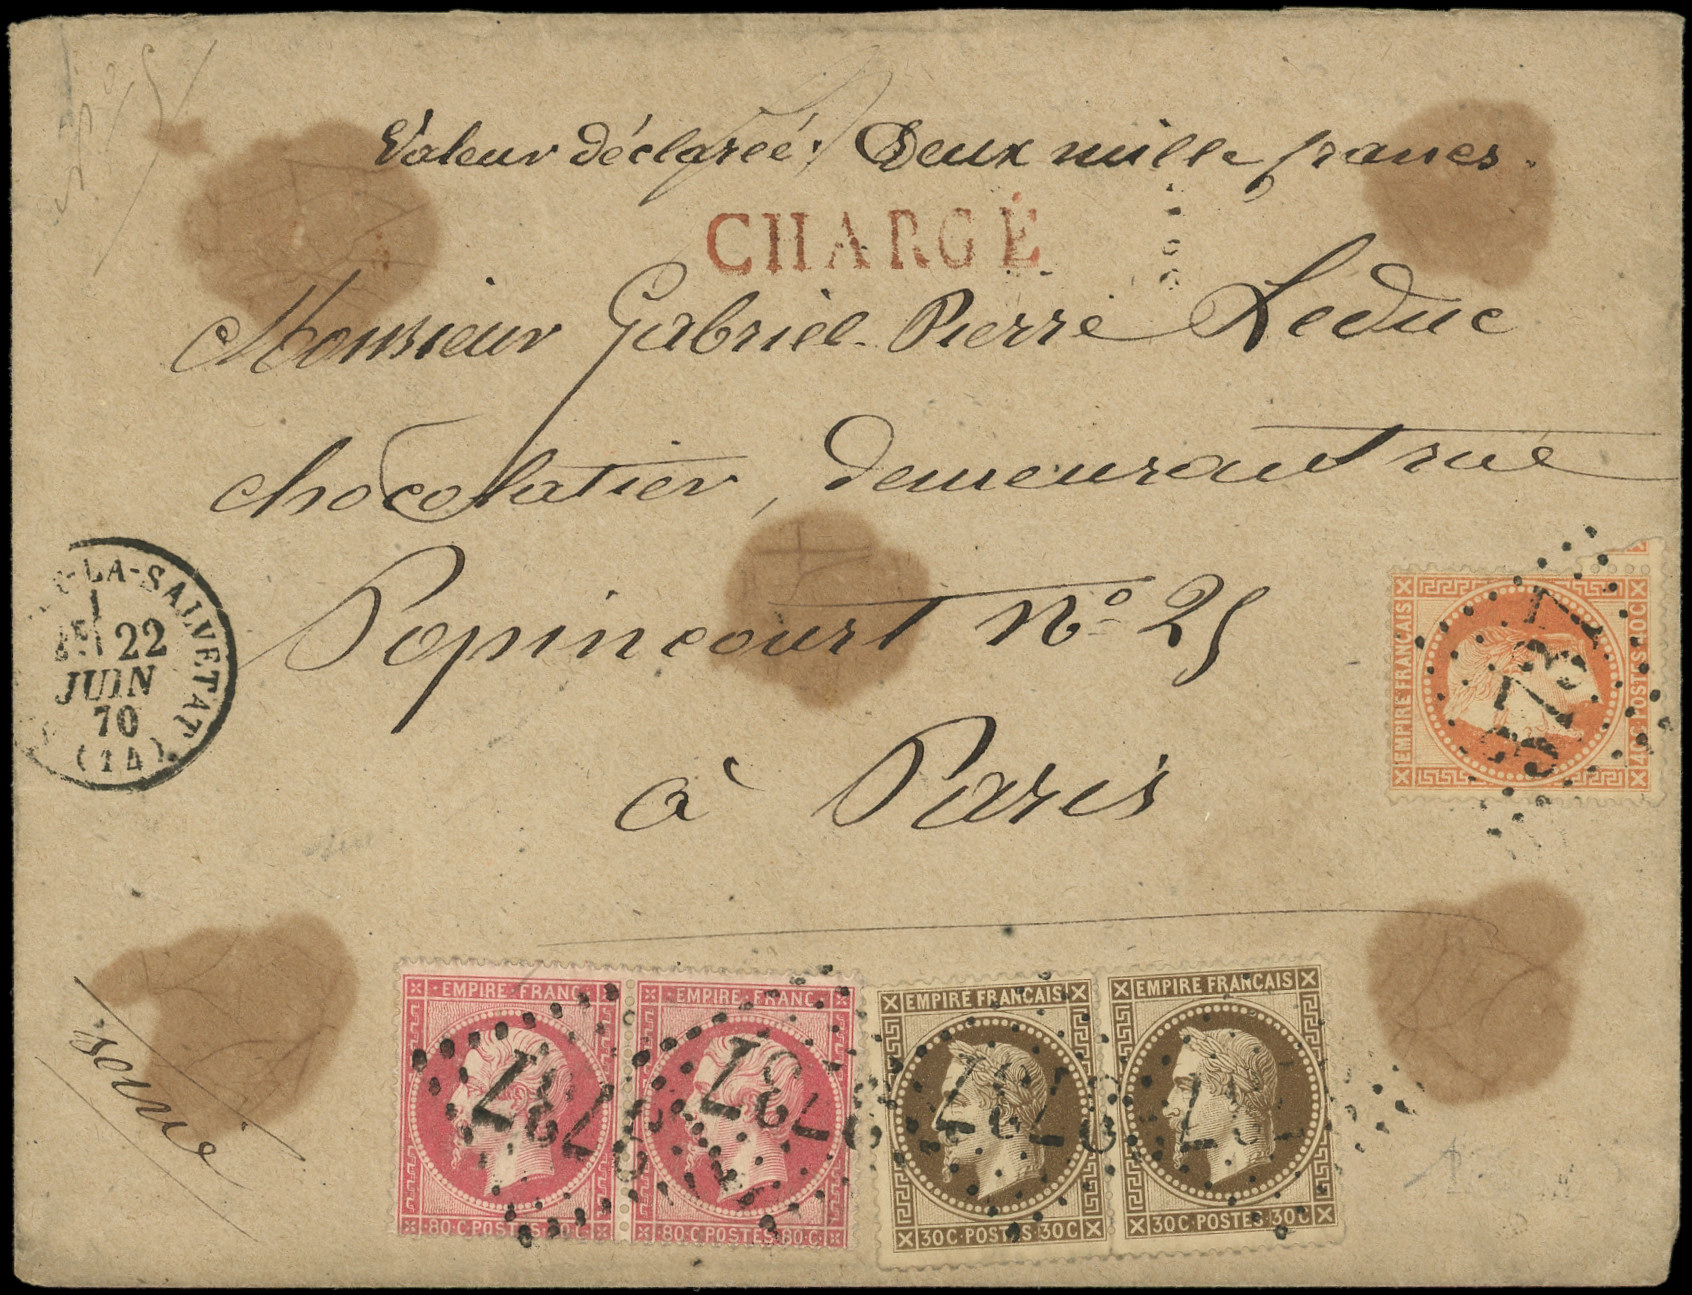 Valeur déclareé: Deux mille francs.
CHARGÉ
Monsieur Gabriel-Pierre Leduc
chocolatier, demeurant rue
Popincourt No 25
à Paris
LA-SALVETAT
22
JUIN
70
(14)
EMPIRE FRANÇAIS
40C·POSTES·40C
3737
EMPIRE·FRANC
80·C·POSTES·80·C
EMPIRE·FRANC
80·C·POSTES·80·C
EMPIRE FRANÇAIS
30C·POSTES·30C
EMPIRE FRANÇAIS
30C·POSTES·30C